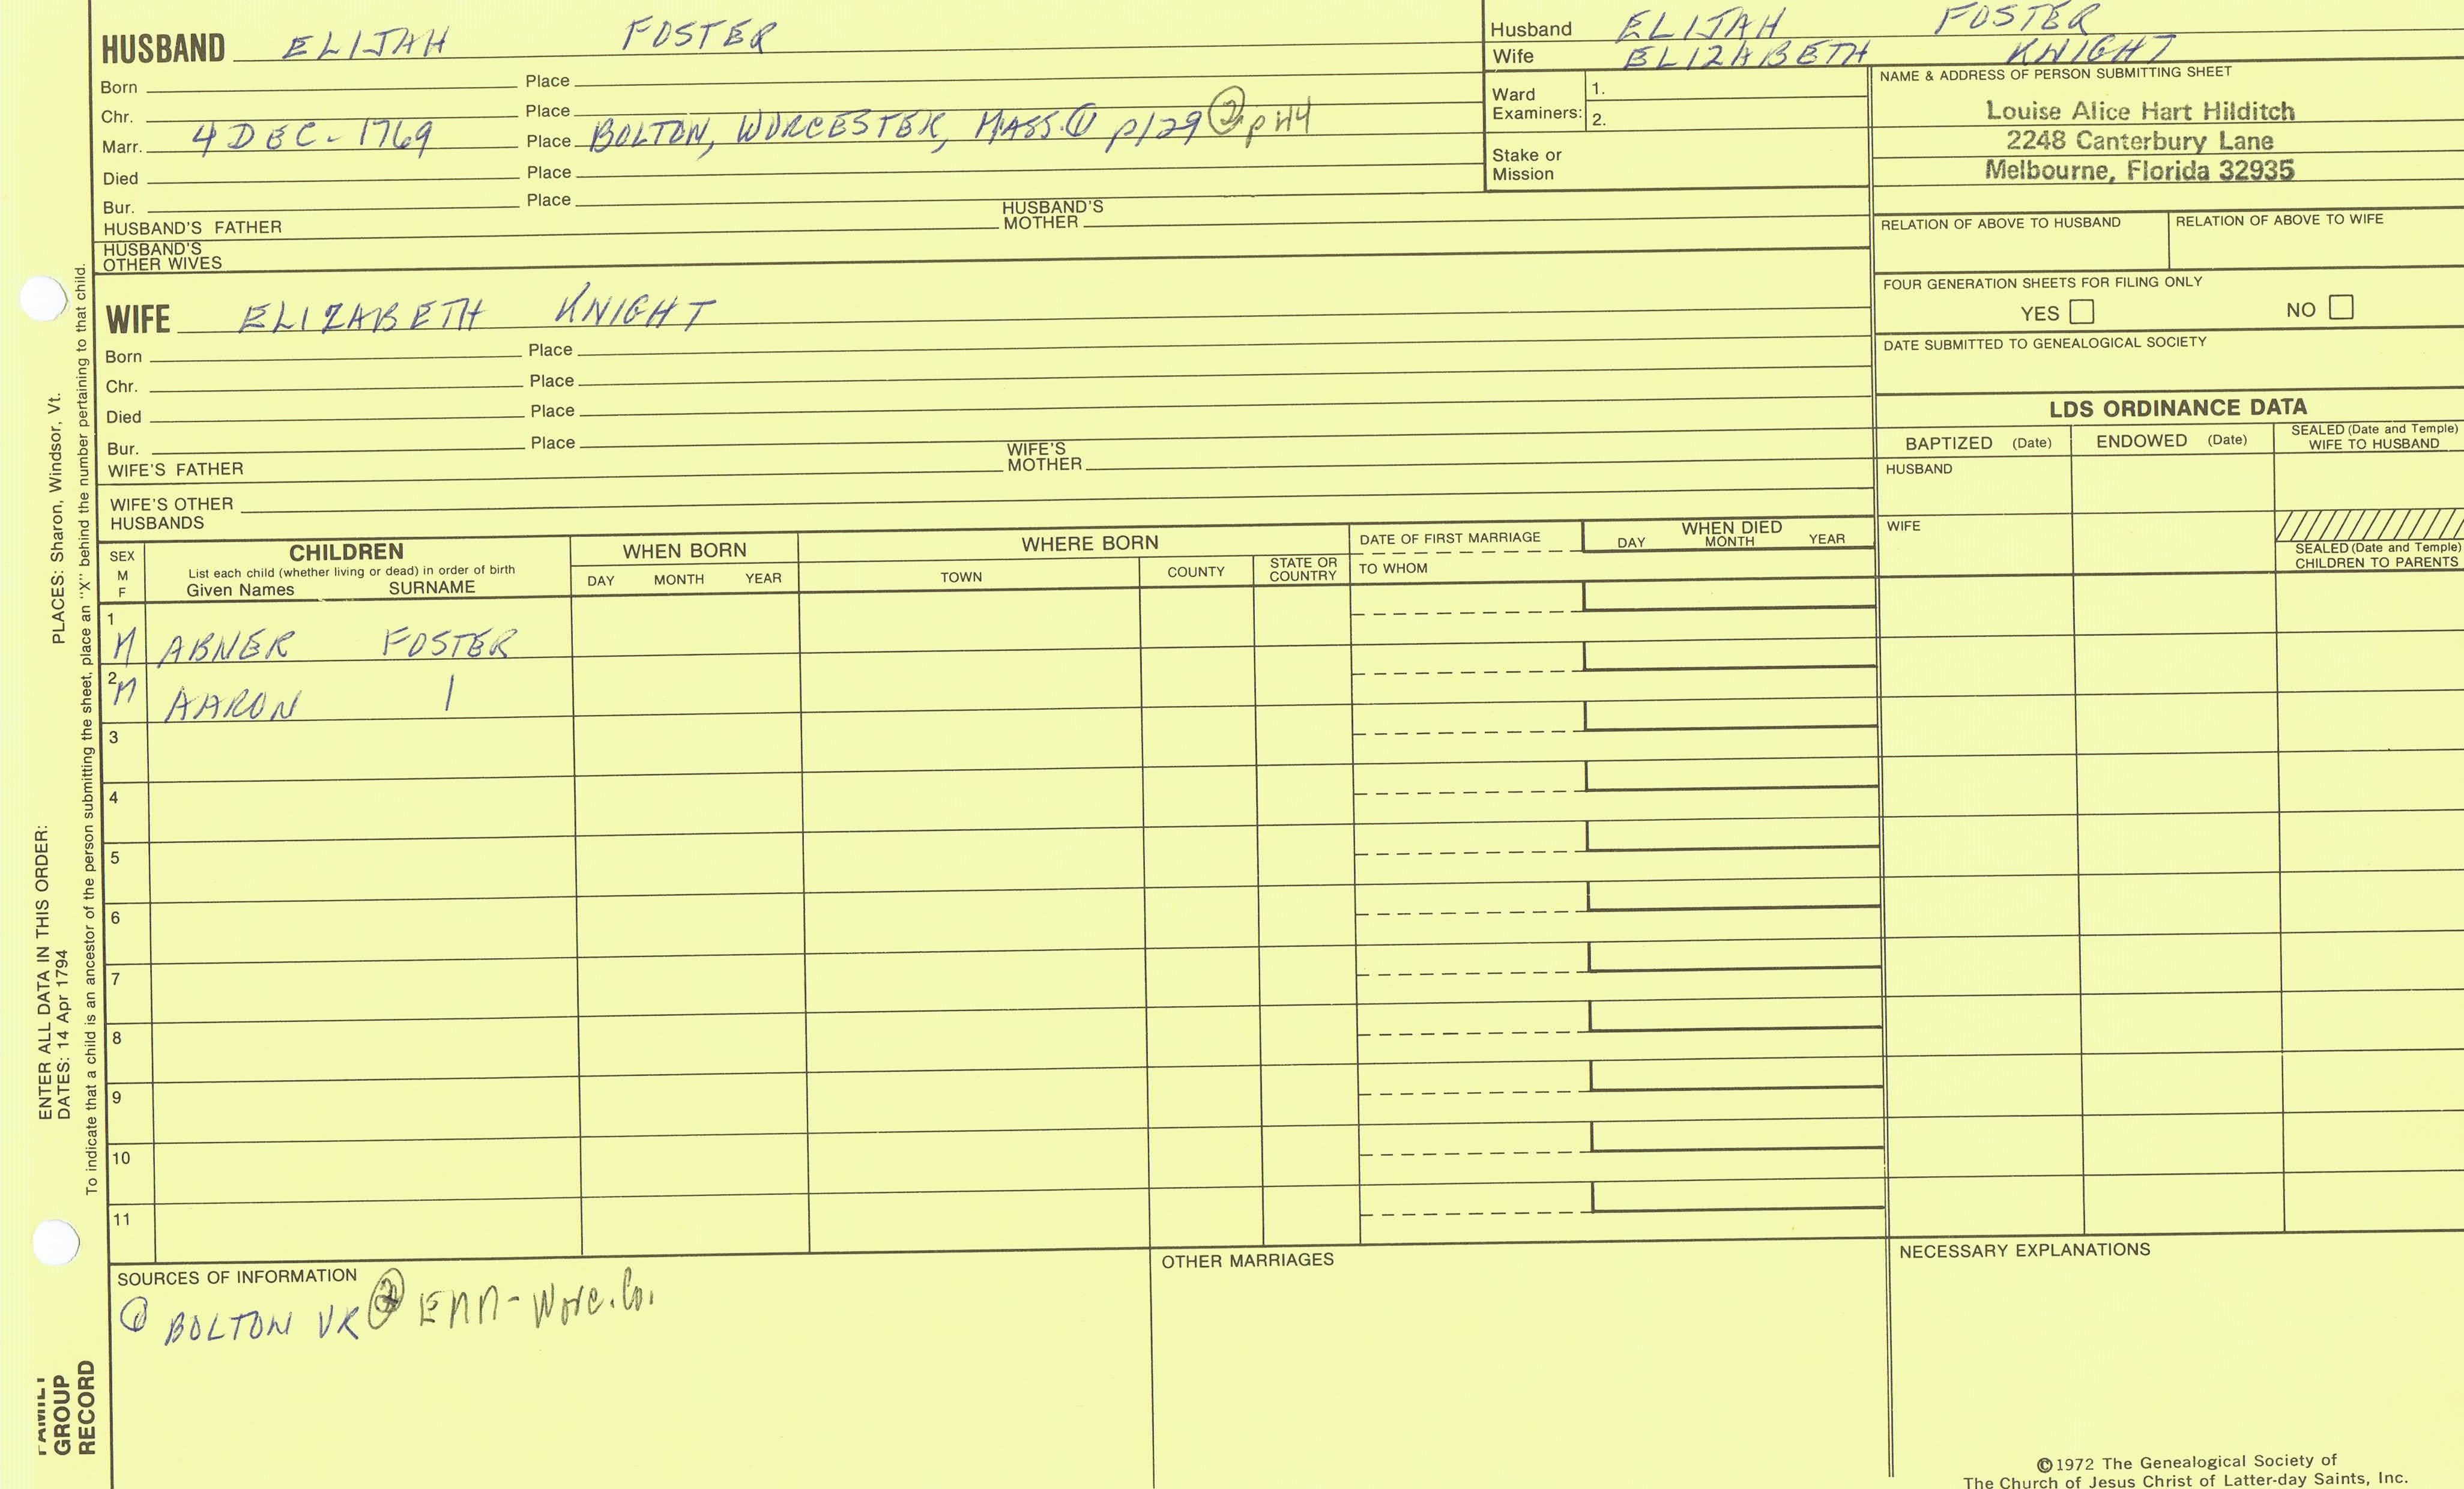 HUSBAND ELIJAH FOSTER
Born Place
Chr. Place
Marr. 4 DEC - 1769 Place BOLTON, WORCESTER, MASS. ① p129 ② p 44
Died Place
Bur. Place
HUSBAND'S FATHER HUSBAND'S MOTHER
HUSBAND'S
OTHER WIVES
Husband ELIJAH FOSTER
Wife ELIZABETH KNIGHT
Ward
Examiners:
1.
2.
Stake or
Mission
NAME & ADDRESS OF PERSON SUBMITTING SHEET
Louise Alice Hart Hilditch
2248 Canterbury Lane
Melbourne, Florida 32935
RELATION OF ABOVE TO HUSBAND RELATION OF ABOVE TO WIFE
FOUR GENERATION SHEETS FOR FILING ONLY
YES NO
DATE SUBMITTED TO GENEALOGICAL SOCIETY
WIFE ELIZABETH KNIGHT
Born Place
Chr. Place
Died Place
Bur. Place
WIFE'S FATHER WIFE'S MOTHER
WIFE'S OTHER
HUSBANDS
LDS ORDINANCE DATA
BAPTIZED (Date) ENDOWED (Date) SEALED (Date and Temple)
WIFE TO HUSBAND
HUSBAND
WIFE
SEALED (Date and Temple)
CHILDREN TO PARENTS
SEX
M
F
CHILDREN
List each child (whether living or dead) in order of birth
Given Names SURNAME
WHEN BORN
DAY MONTH YEAR
WHERE BORN
TOWN COUNTY STATE OR
COUNTRY
DATE OF FIRST MARRIAGE
TO WHOM
WHEN DIED
DAY MONTH YEAR
1 M ABNER FOSTER
2 M AARON |
3
4
5
6
7
8
9
10
11
SOURCES OF INFORMATION
① BOLTON VR ② EMM - Worc. Co.
OTHER MARRIAGES
NECESSARY EXPLANATIONS
©1972 The Genealogical Society of
The Church of Jesus Christ of Latter-day Saints, Inc.
FAMILY
GROUP
RECORD
ENTER ALL DATA IN THIS ORDER:
DATES: 14 Apr 1794
PLACES: Sharon, Windsor, Vt.
To indicate that a child is an ancestor of the person submitting the sheet, place an "X" behind the number pertaining to that child.